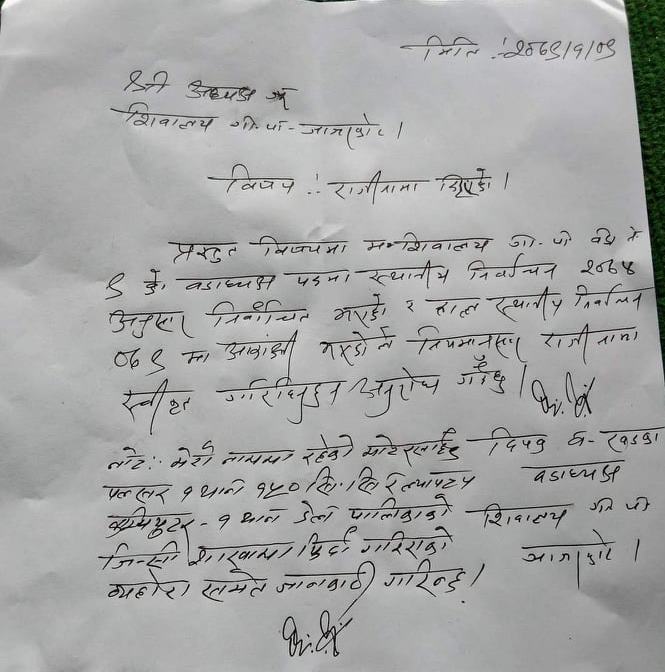 मिति :- २०७९/१/०९
श्री अध्यक्ष ज्यू
शिवालय गा.पा- जाजरकोट।
विषय :- राजीनामा दिएको।
प्रस्तुत विषयमा म शिवालय गा.पा वडा नं
९ को वडाध्यक्ष पदमा स्थानीय निर्वाचन २०७४
अनुसार निर्वाचित भएको र हाल स्थानीय निर्वाचन
०७९ मा आकांक्षी भएकोले नियमानुसार राजीनामा
स्वीकृत गरिदिनुहुन अनुरोध गर्दछु।
नोट:- मेरो नाममा रहेको मोटरसाईकल दिपक ब- खड्का
पल्सर १ थान १५० सि.सि र ल्यापटप वडाध्यक्ष
कम्प्युटर - १ थान डेल पालिकाको शिवालय गा पा
जिन्सी शाखामा फिर्ता गरिएको जाजरकोट।
व्यहोरा समेत जानकारी गरिन्छ।